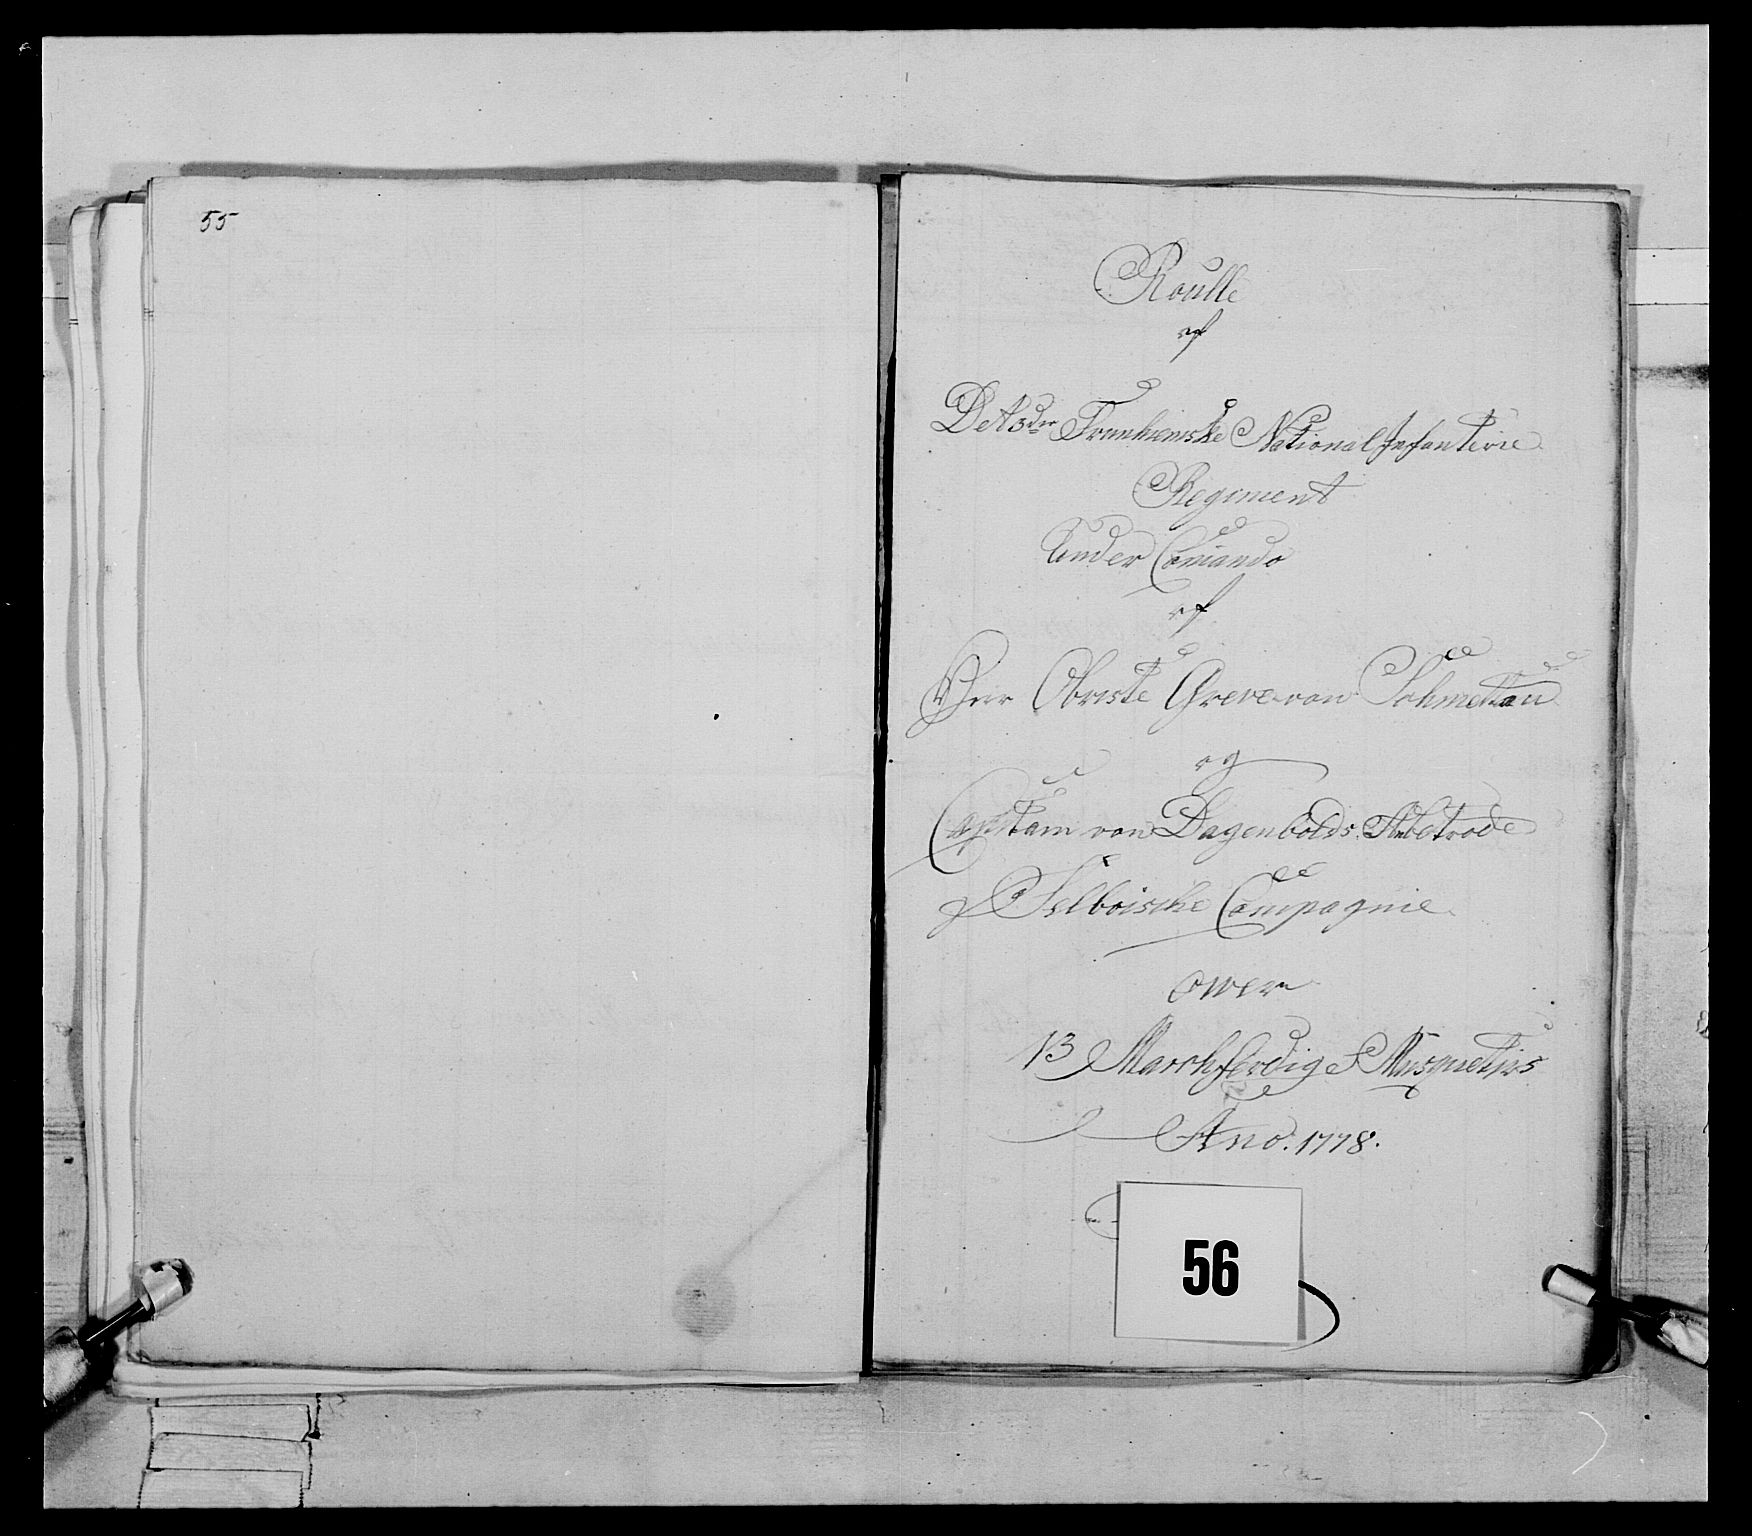 55
Roulle
af
Det 3die Trunhiemske National Infanterie
Regiment
Under Comando
af
Herr Obriste Greve von Schmettau
og
Capitain von Dagenbolds Anbetrode
Selboische Compagnie
over
13 Marchferdige Musquetirs
Ano. 1778.
56